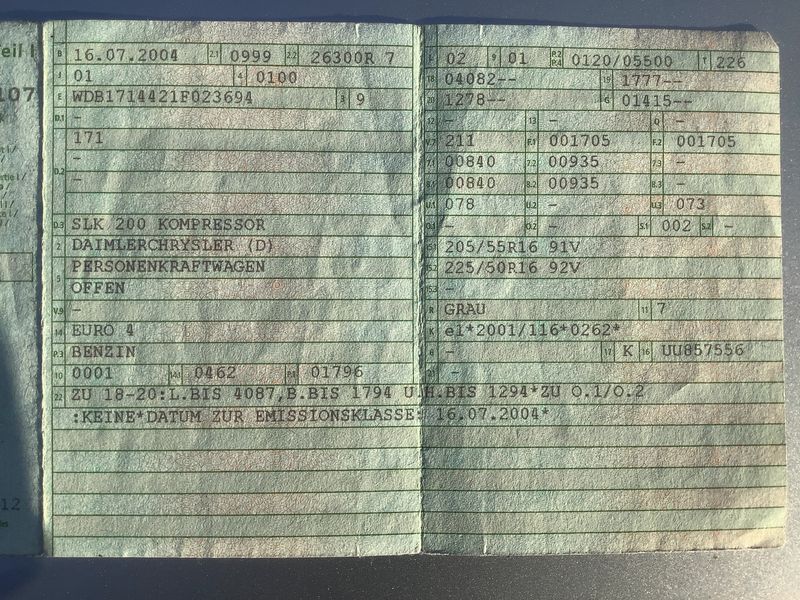 Teil I
107
12
B 16.07.2004 2.1 0999 2.2 26300R 7
J 01 4 0100
E WDB1714421F023694 3 9
D.1 -
171
-
D.2 -
D.3 SLK 200 KOMPRESSOR
2 DAIMLERCHRYSLER (D)
PERSONENKRAFTWAGEN
5 OFFEN
V.9 -
14 EURO 4
P.3 BENZIN
10 0001 14.1 0462 P.1 01796
22 ZU 18-20:L.BIS 4087,B.BIS 1794 U.H.BIS 1294*ZU O.1/O.2
:KEINE*DATUM ZUR EMISSIONSKLASSE: 16.07.2004*
L 02 9 01 P.2 P.4 0120/05500 T 226
18 04082-- 19 1777--
20 1278-- G 01415--
12 - 13 - Q -
V.7 211 F.1 001705 F.2 001705
7.1 00840 7.2 00935 7.3 -
8.1 00840 8.2 00935 8.3 -
U.1 078 U.2 - U.3 073
O.1 - O.2 - S.1 002 S.2 -
15.1 205/55R16 91V
15.2 225/50R16 92V
15.3 -
R GRAU 11 7
K e1*2001/116*0262*
6 - 17 K 16 UU857556
21 -